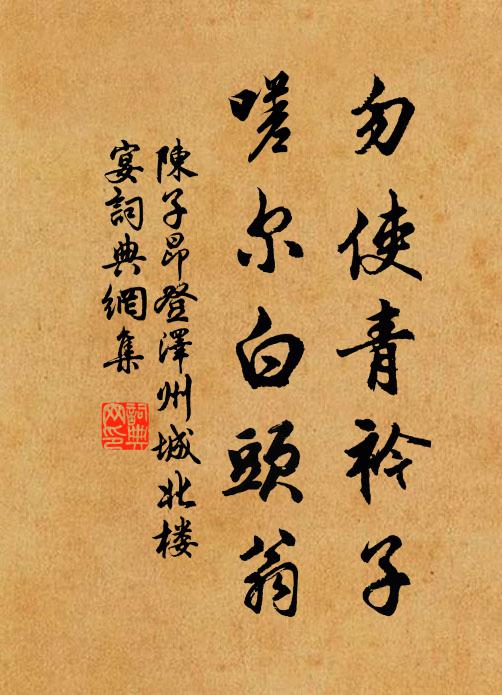 勿使青衿子
嗟尔白頭翁
陳子昂登澤州城北楼
宴詞典網集
詞典
网印